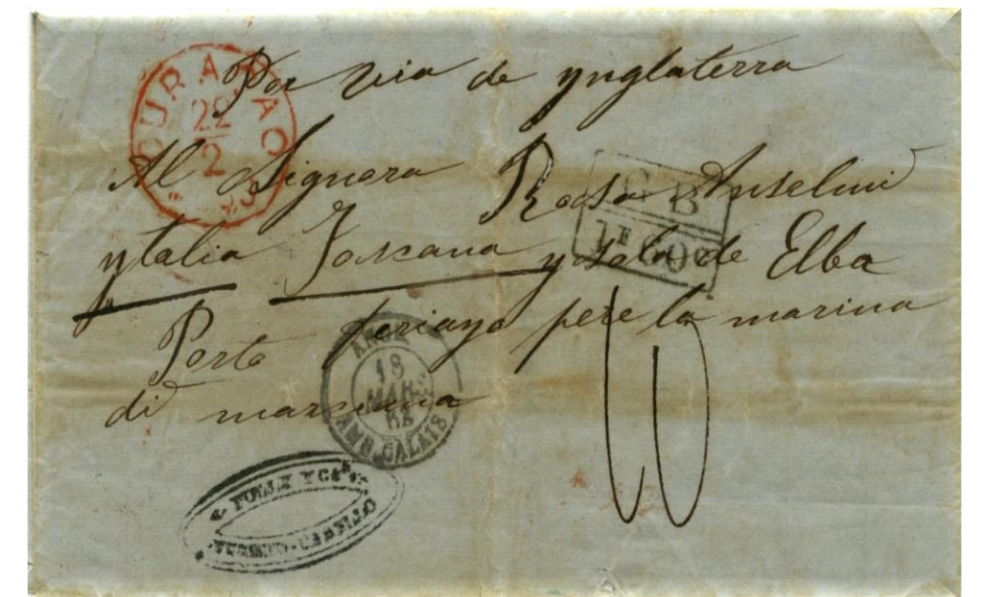 Por via de ynglaterra
CURAÇAO
22
2
Al Signora Rosa Anselmi
G B
1F 60C
ytalia Toscana ysola de Elba
Porto feriayo pere la marina
di marciana
ANGL.
18
MARS
AMB. CALAIS
Y Ca
PUERTO-CABELLO